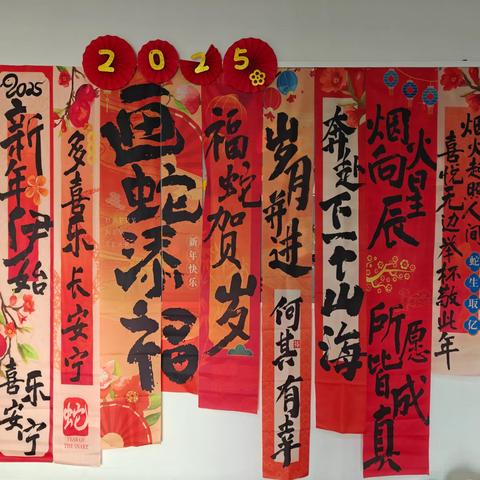 2025
2025
新年伊始
喜乐
安宁
多喜乐长安宁
蛇
YEAR OF
THE SNAKE
画蛇添福
HAPPY
新年快乐
福蛇贺岁
岁月并进
何其有幸
奔赴下一个山海
烟火向星辰
所愿皆成真
烟火起照人间
喜悦无边举杯敬此年
蛇生取亿